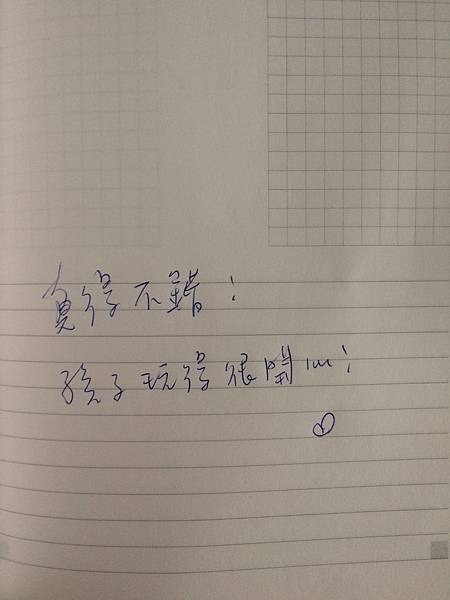 覺得不錯!
孩子玩得很開心!